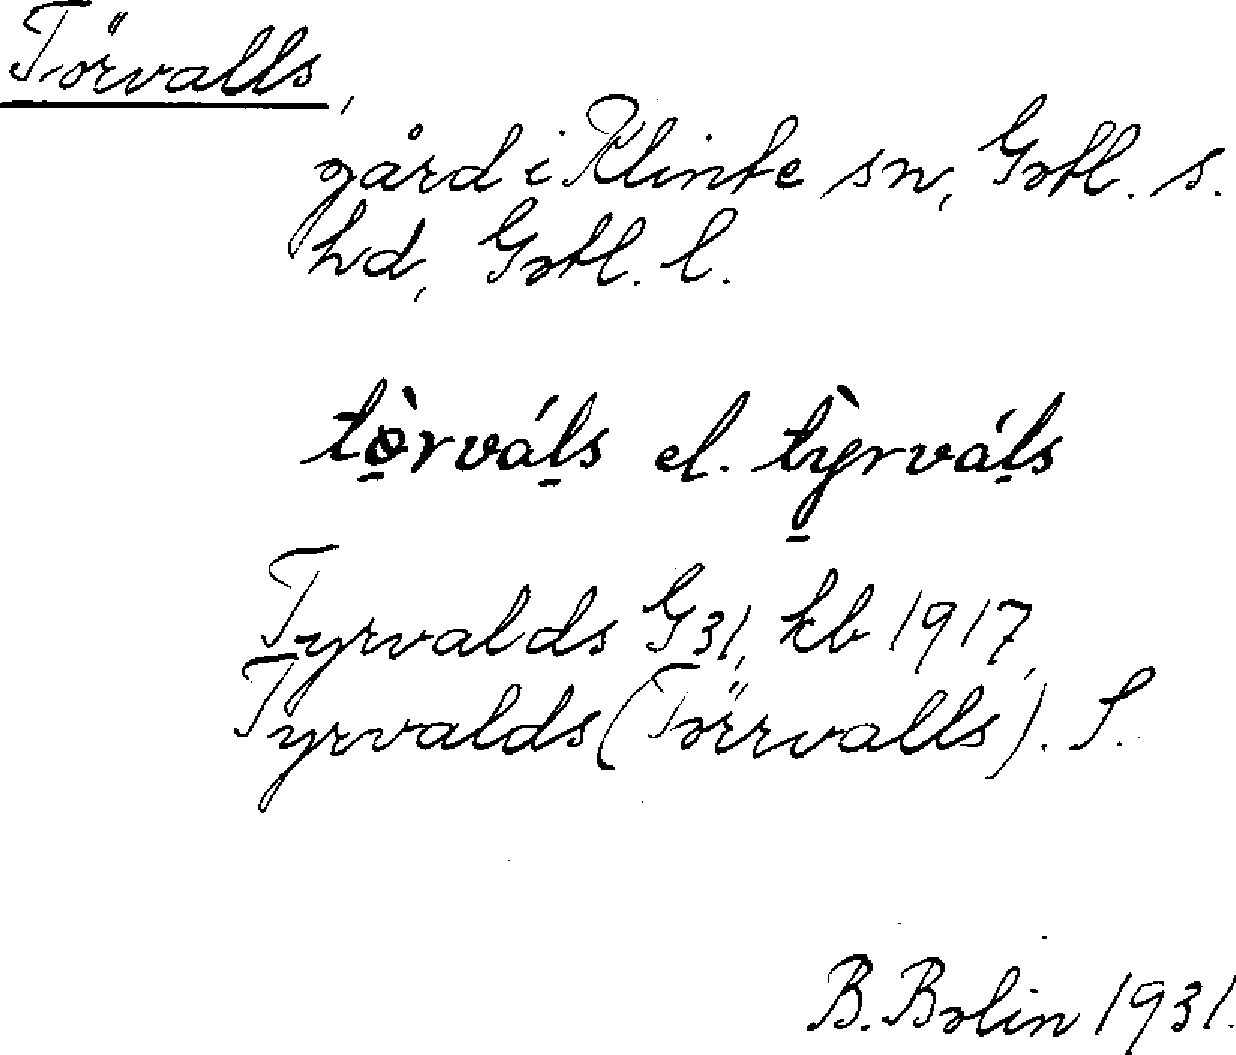 Törvalls,
gård i Klinte sn, Gotl. s.
hd, Gotl. l.
tò̱rváḻs el. tỳ̱rváḻs
Tyrvalds G31, kb 1917,
Tyrvalds (Törrvalls). S.
B. Bolin 1931.